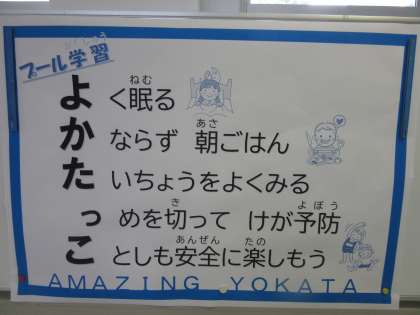 プール学習
ねむ
よく眠る
あさ
かならず 朝ごはん
たいちょうをよくみる
き よぼう
っめを切って けが予防
あんぜん たの
ことしも安全に楽しもう
AMAZING YOKATA